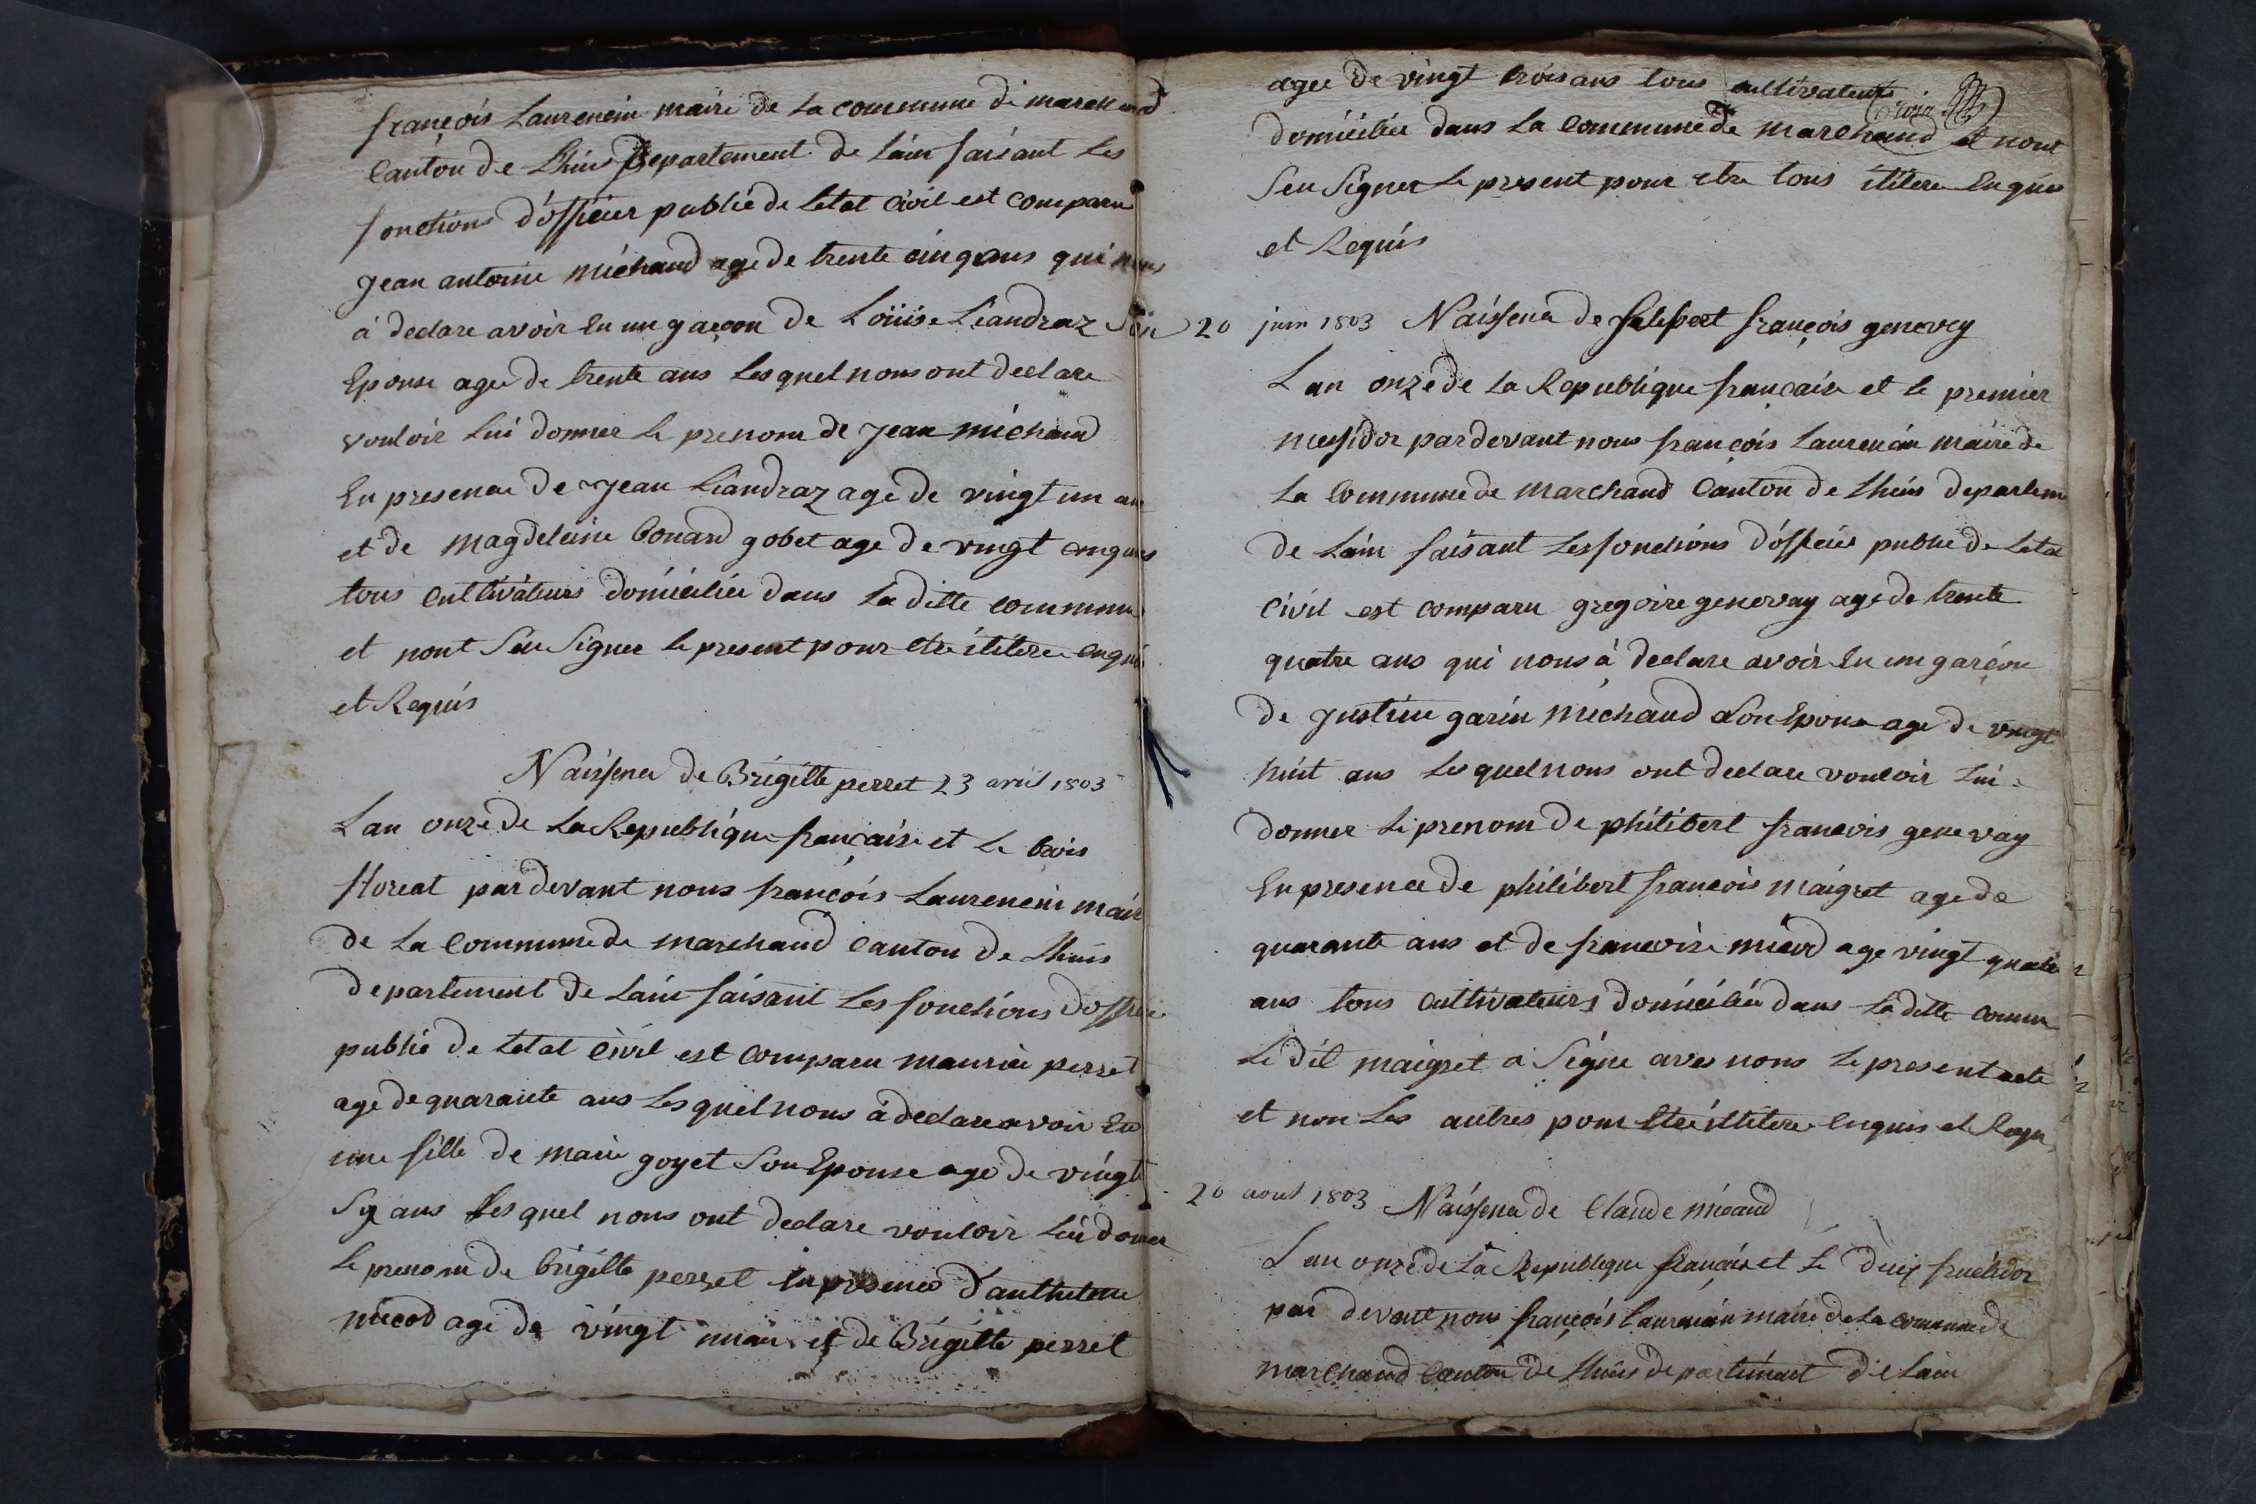 françois Laurencin maire de La commune de marchand
Canton de Lhuis Departement de Lain faisant Les
fonctions d'officier public de Letat Civil est Comparu
jean antoine michaud age de trente cinq ans qui nous
à declare avoir Eu un garçon de Loüise Liandraz Son
Epouse agee de trente ans Lesquel nous ont declare
vouloir Lui donner Le prenom de jean michaud
En presence De jean Liandraz age de vingt un ans
et de magdeleine bonard gobet age de vingt cinq ans
tous Cultivateurs domicilies dans Laditte commune
et nont Seu Signer Le present pour etre ilitere enquis
et Requis
Naissence de Brigitte perret 23 avril 1803
Lan onze de La Republique française et Le trois
floreal pardevant nous françois Laurencin maire
de La Commune de marchand Canton de Lhuis
departement de Lain faisant Les fonctions dofficier
public de Letat Civil est Comparu maurice perret
age de quarante ans Lesquel nous à declare avoir Eu
une fille de marie goyet Son Epouse age de vingt
Sy ans Lesquel nous ont declare vouloir Lui donner
Le prenom de brigitte perret En presence D'anthelme
micod age de vingt et de Brigitte perret
agee de vingt trois ans tous cultivateurs
domicilies dans La Commune de marchand et nont
Seu Signer Le present pour etre tous ilitere Enquis
et Requis
20 juin 1803 Naissence de françois genevey
Lan onze de La Republique française et le premier
messidor pardevant nous françois Laurencin maire de
La Commune de marchand Canton de Lhuis departem
de Lain faisant Les fonctions d'officier public de Letat
Civil est comparu gregoire genevay age de trente
quatre ans qui nous à declare avoir Eu un garçon
de justine garin michaud Son Epouse age de vingt
huit ans Lesquel nous ont declare vouloir Lui
donner Le prenom de philibert francois genevay
En presence de philibert francois maigret age de
quarante ans et de francoise age vingt quatre
ans tous Cultivateurs domicilies dans Laditte comm
Le dit maigret a Signe avec nous Le present acte
et non Les autres pour Etre ilitere Enquis et Requ
20 aout 1803 Naissence de Claude micaud
Lan onze de La Republique française et Le deux fructidor
par devant nous françois Laurencin maire de La commune de
marchand Canton de Lhuis departement de Lain